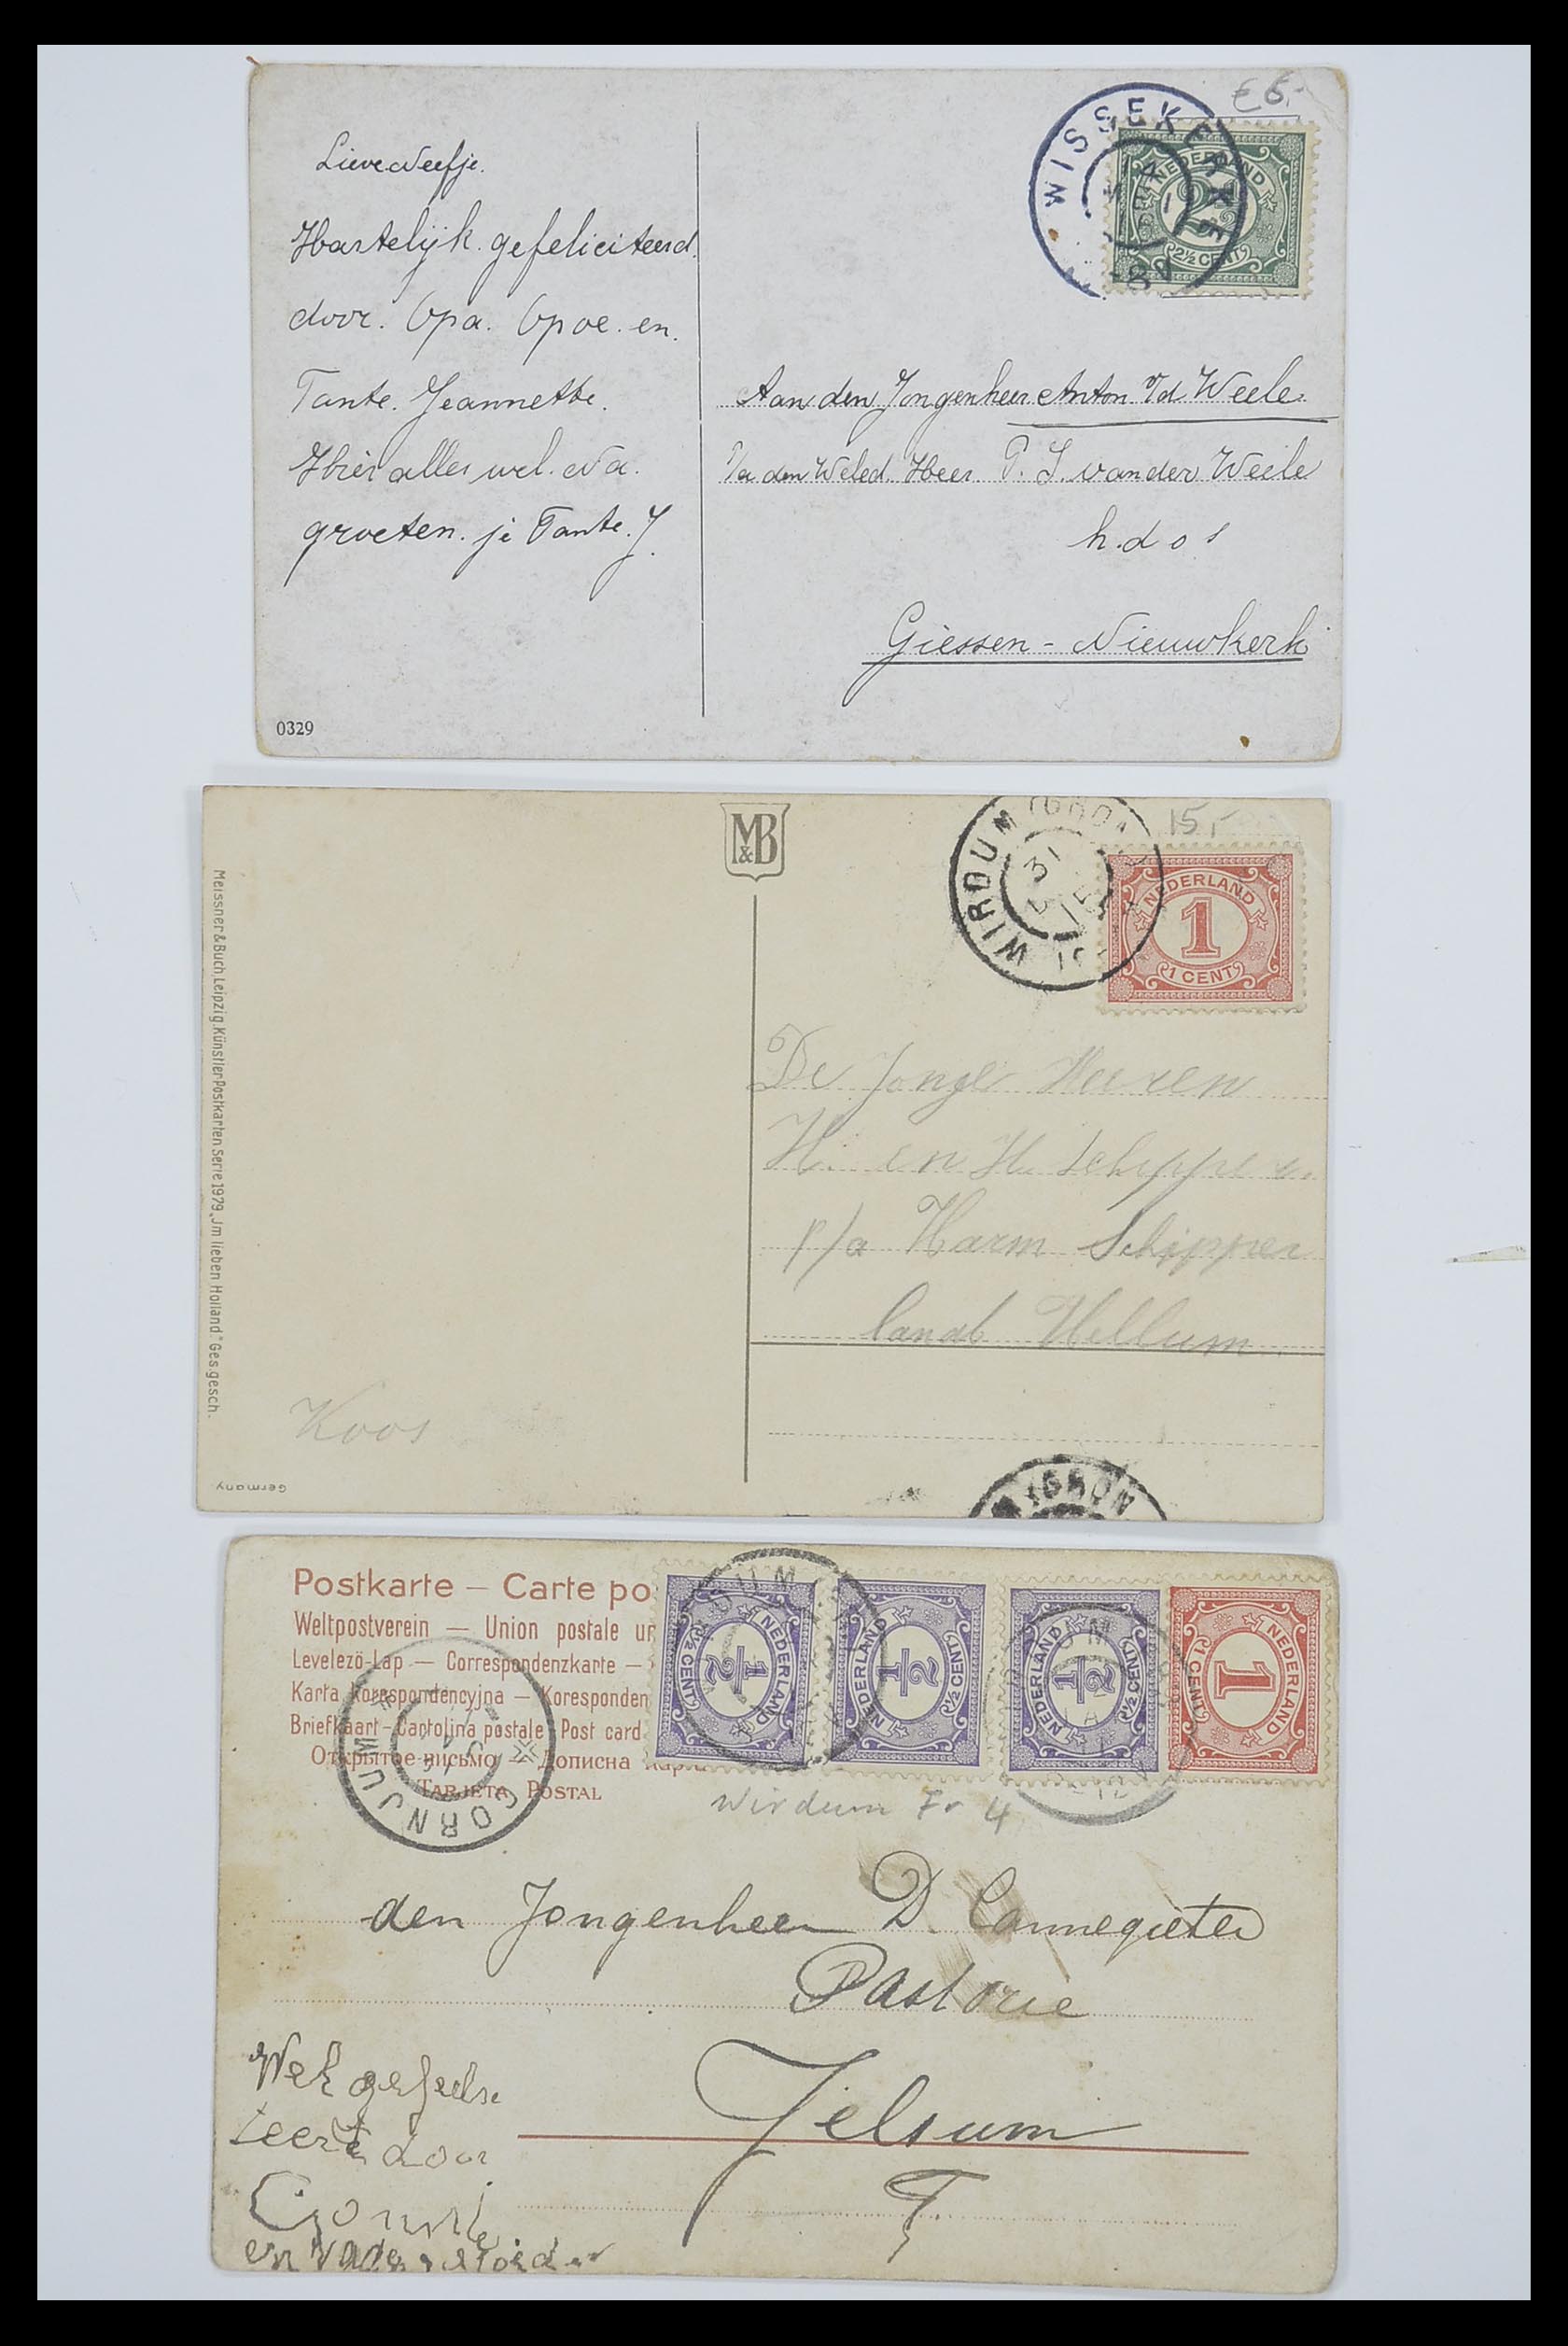 € 6,-
WISSEKERKE
NEDERLAND
2½ CENT
Lieve Neefje.
Hartelijk. gefeliciteerd.
door. Opa. Opoe. en.
Tante. Jeannette.
Hier alles wel. Na.
groeten. je Tante. J.
Aan den Jongenheer Anton v/d Weele.
P/a den Weled. Heer. P. J. van der Weele
h.d o s
Giessen-Nieuwkerk
0329
M&B
15,-
WIRDUM (GRON.)
31
15
NEDERLAND
1
1 CENT
Meissner & Buch, Leipzig. Künstler-Postkarten Serie 1979 „Im lieben Holland." Ges. gesch.
De Jonge Heeren
H. en H. Schipper.
p/a Harm Schipper
Hellum.
Koos
Germany
(GRON
Postkarte — Carte po
Weltpostverein — Union postale un
Levelezö-Lap — Correspondenzkarte —
Karta Korespondencyjna — Koresponden
Briefkaart — Cartolina postale Post card
Открытое письмо — Дописна карт
TARJETA POSTAL
CORNJUM
NEDERLAND
½
½ CENT
NEDERLAND
½
½ CENT
NEDERLAND
½
½ CENT
NEDERLAND
1
1 CENT
Wirdum Fr 4
den Jongenheer D. Cannegieter
Pastorie
Jelsum
F.
teert door
en Vader Moeder